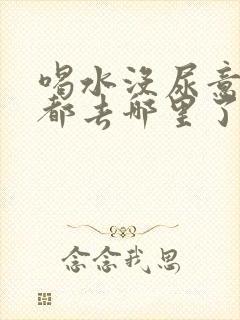 喝水没尿意
都去哪里了
念念我思